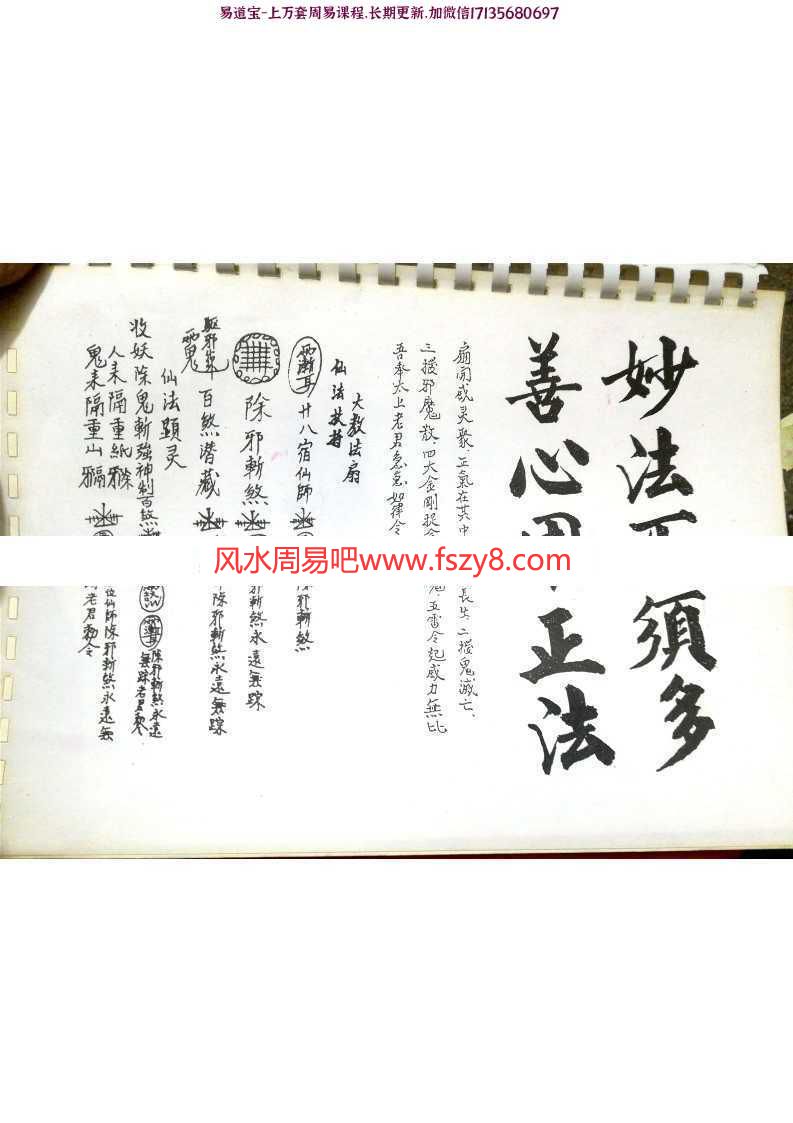 易道宝-上万套周易课程.长期更新.加微信17135680697
妙法 須多
善心 正法
扇開威灵聚、正氣在其中 長生二撥鬼滅亡、
三撥邪魔放、四大金剛捉 五雷令起威力無比
吾奉太上老君急急如律令
大教法扇
仙法扶持
廿八宿仙師 除邪斬煞
除邪斬煞 邪斬煞永遠無踪
驅邪 百煞潜藏 除邪斬煞永遠無踪
仙法顕灵
收妖除鬼斬強神 百煞 除邪斬煞永遠無踪老君勅令
人来隔重紙
鬼来隔重山 仙師除邪斬煞永遠無
老君勅令
风水周易吧www.fszy8.com